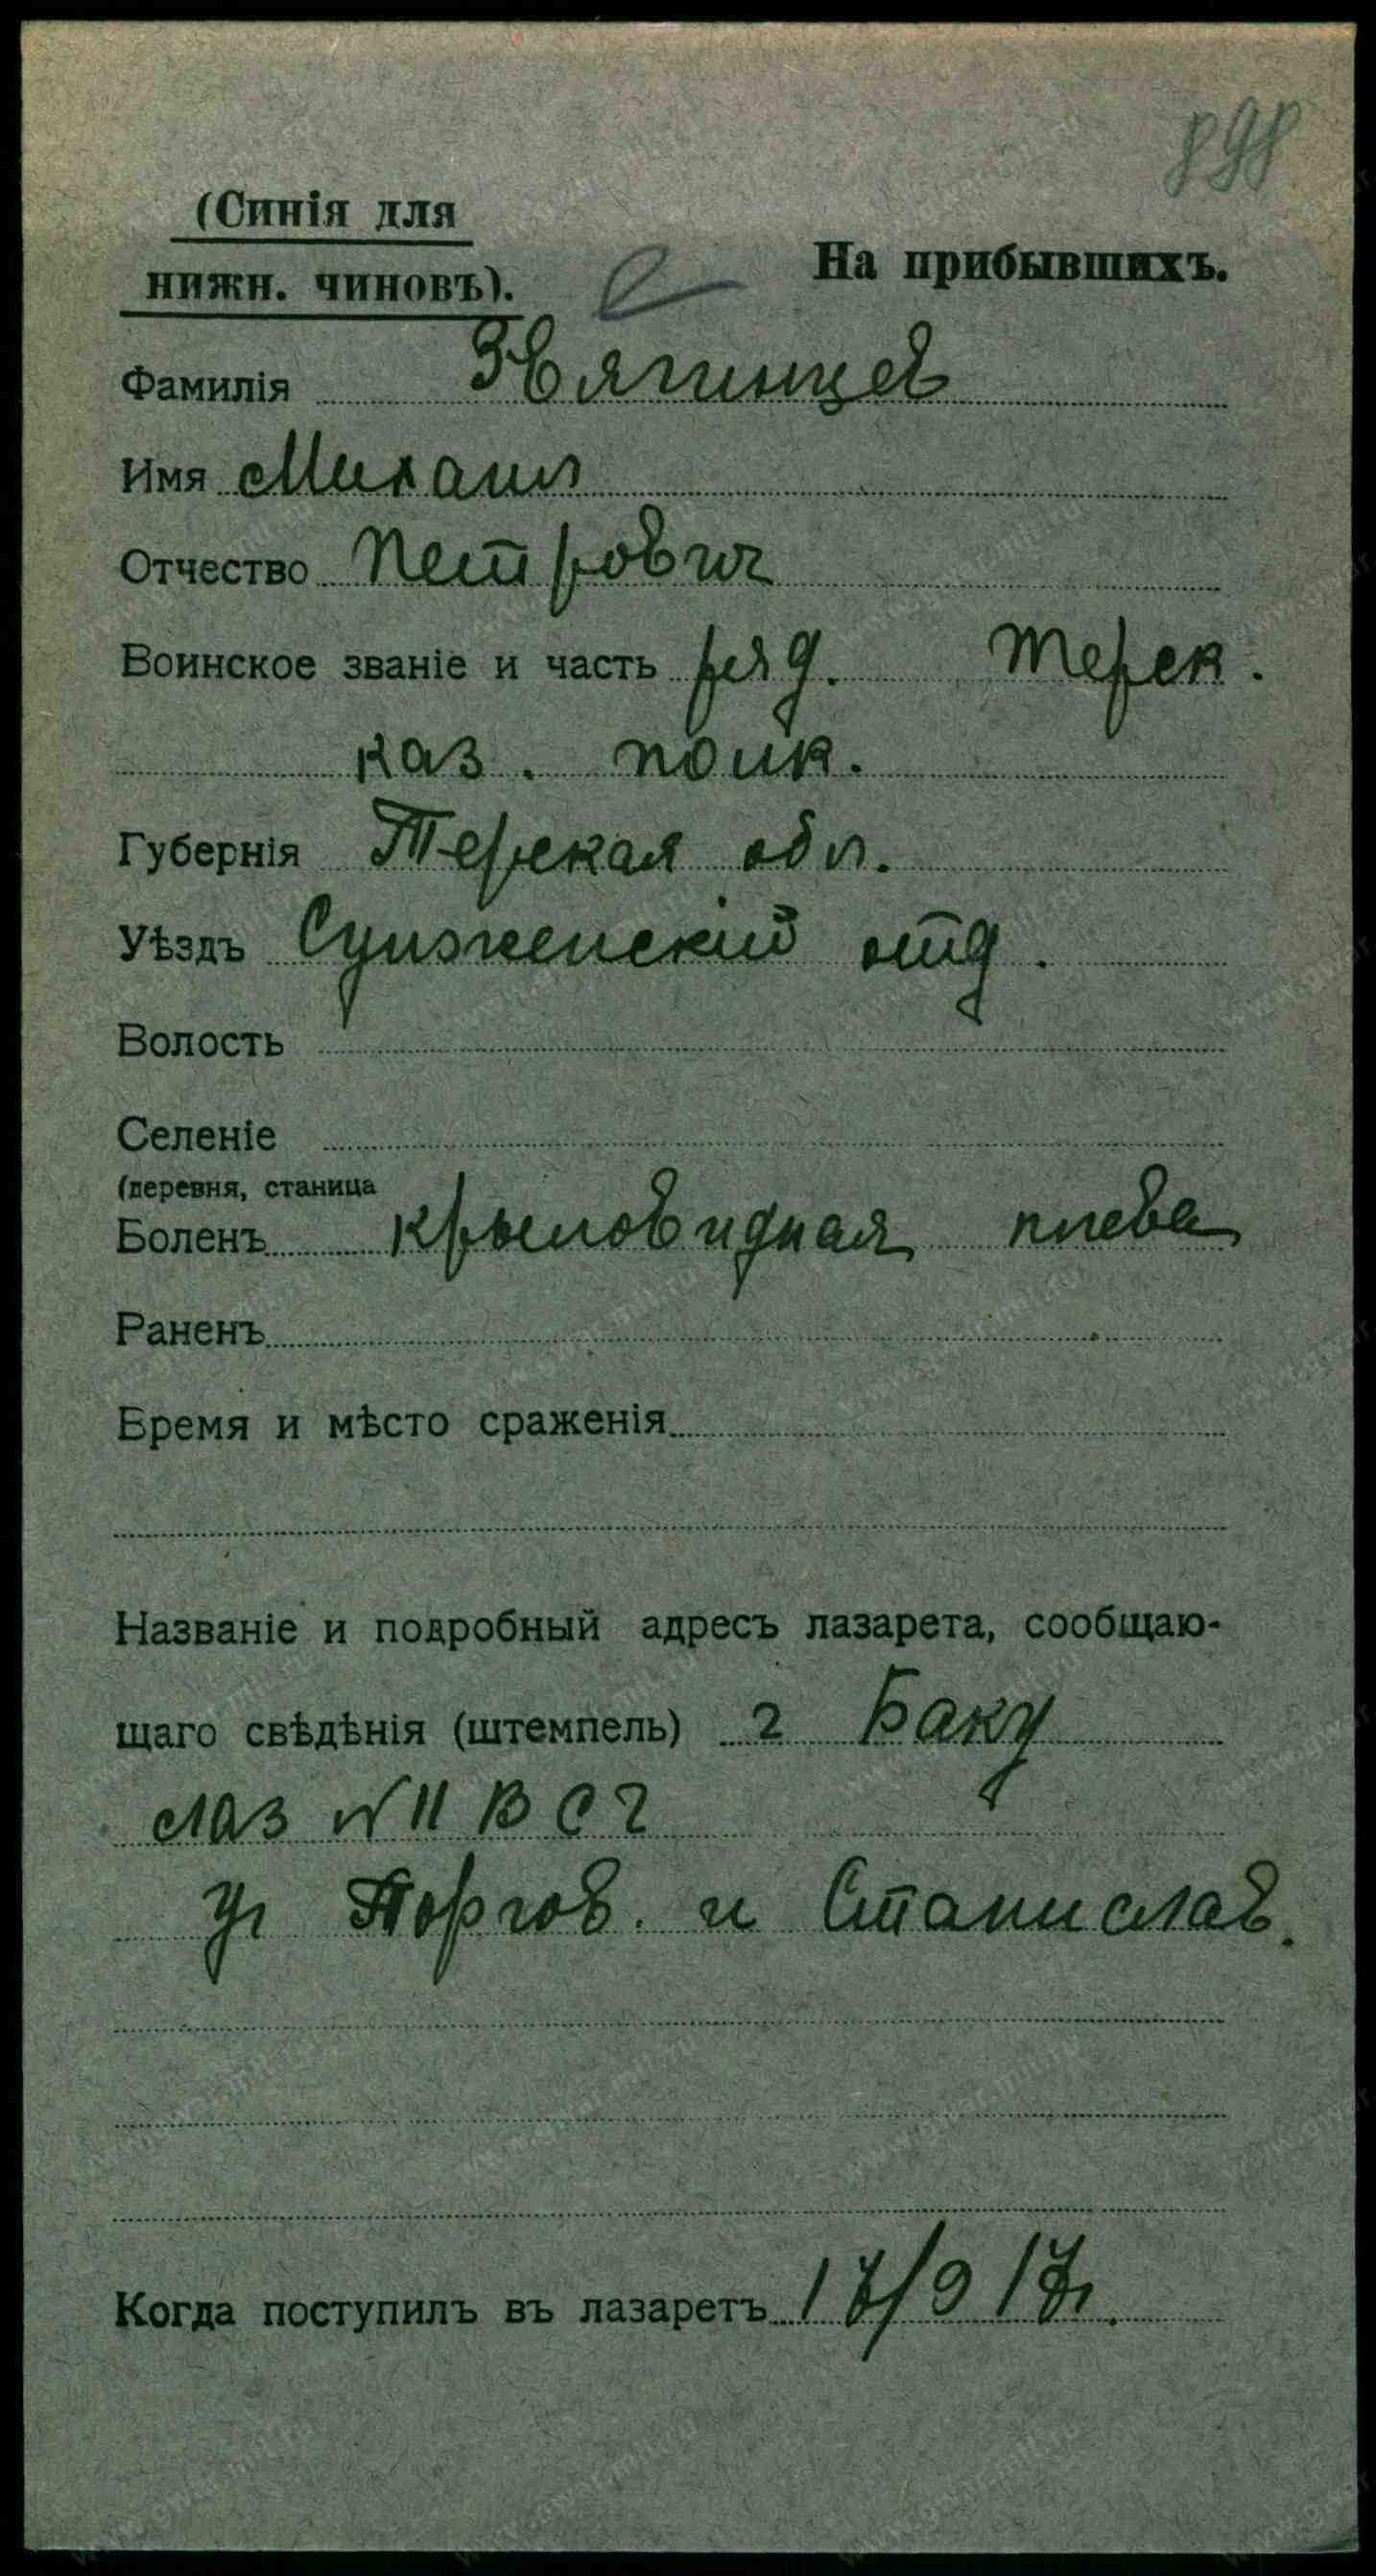 898
(Синія для
нижн. чиновъ).
На прибывшихъ.
Фамилія Звягинцев
Имя Михаил
Отчество Петрович
Воинское званіе и часть ряд. Терск.
каз. полк.
Губернія Терская обл.
Уѣздъ Сунженскій отд.
Волость
Селеніе
(деревня, станица
Боленъ крыловидная плева
Раненъ
Время и мѣсто сраженія
Названіе и подробный адресъ лазарета, сообщаю-
щаго свѣдѣнія (штемпель) г Баку
лаз № 11 В С Г
уг Торгов. и Станислав.
Когда поступилъ въ лазаретъ 17/9 17г.